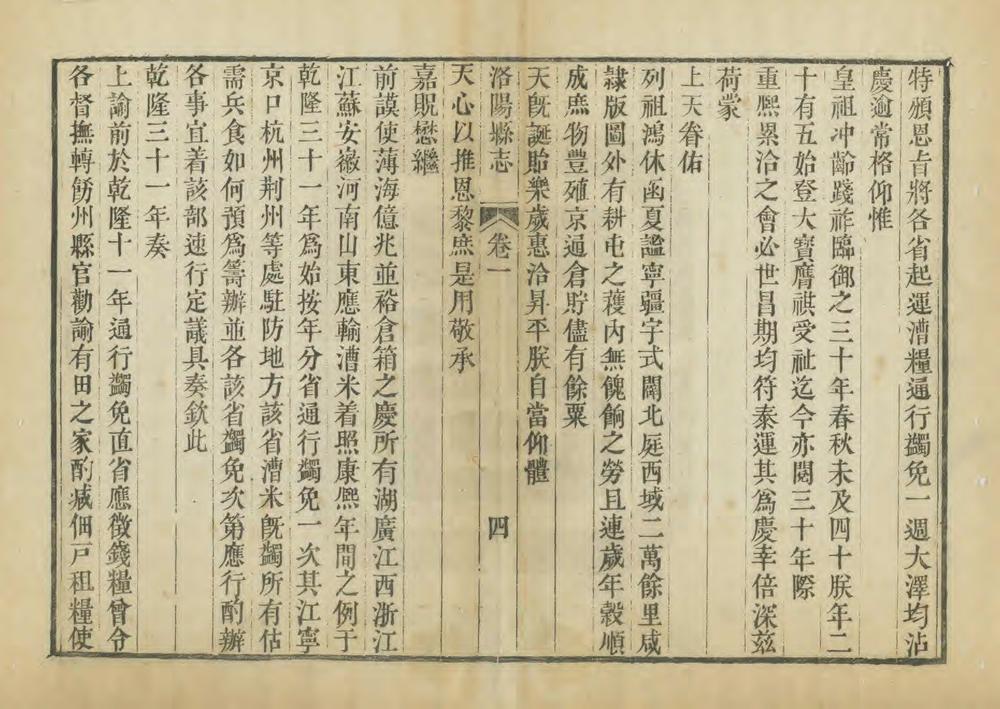 特頒恩旨將各省起運漕糧通行蠲免一週大澤均沾
慶逾常格仰惟
皇祖冲齡踐祚臨御之三十年春秋未及四十朕年二
十有五始登大寶膺祺受祉迄今亦閱三十年際
重熙累洽之會必世昌期均符泰運其為慶幸倍深茲
荷蒙
上天眷佑
列祖鴻休函夏謐寧疆宇式闢北庭西域二萬餘里咸
隸版圖外有耕屯之穫內無餽餉之勞且連歲年穀順
成庶物豐殖京通倉貯儘有餘粟
天既誕貽樂歲惠洽昇平朕自當仰體
洛陽縣志 卷一 四
天心以推恩黎庶是用敬承
嘉貺懋繼
前謨使薄海億兆並裕倉箱之慶所有湖廣江西浙江
江蘇安徽河南山東應輸漕米着照康熙年間之例于
乾隆三十一年為始按年分省通行蠲免一次其江寧
京口杭州荆州等處駐防地方該省漕米既蠲所有估
需兵食如何預為籌辦並各該省蠲免次第應行酌辦
各事宜着該部速行定議具奏欽此
乾隆三十一年奏
上諭前於乾隆十一年通行蠲免直省應徵錢糧曾令
各督撫轉飭州縣官勸諭有田之家酌減佃戶租糧使